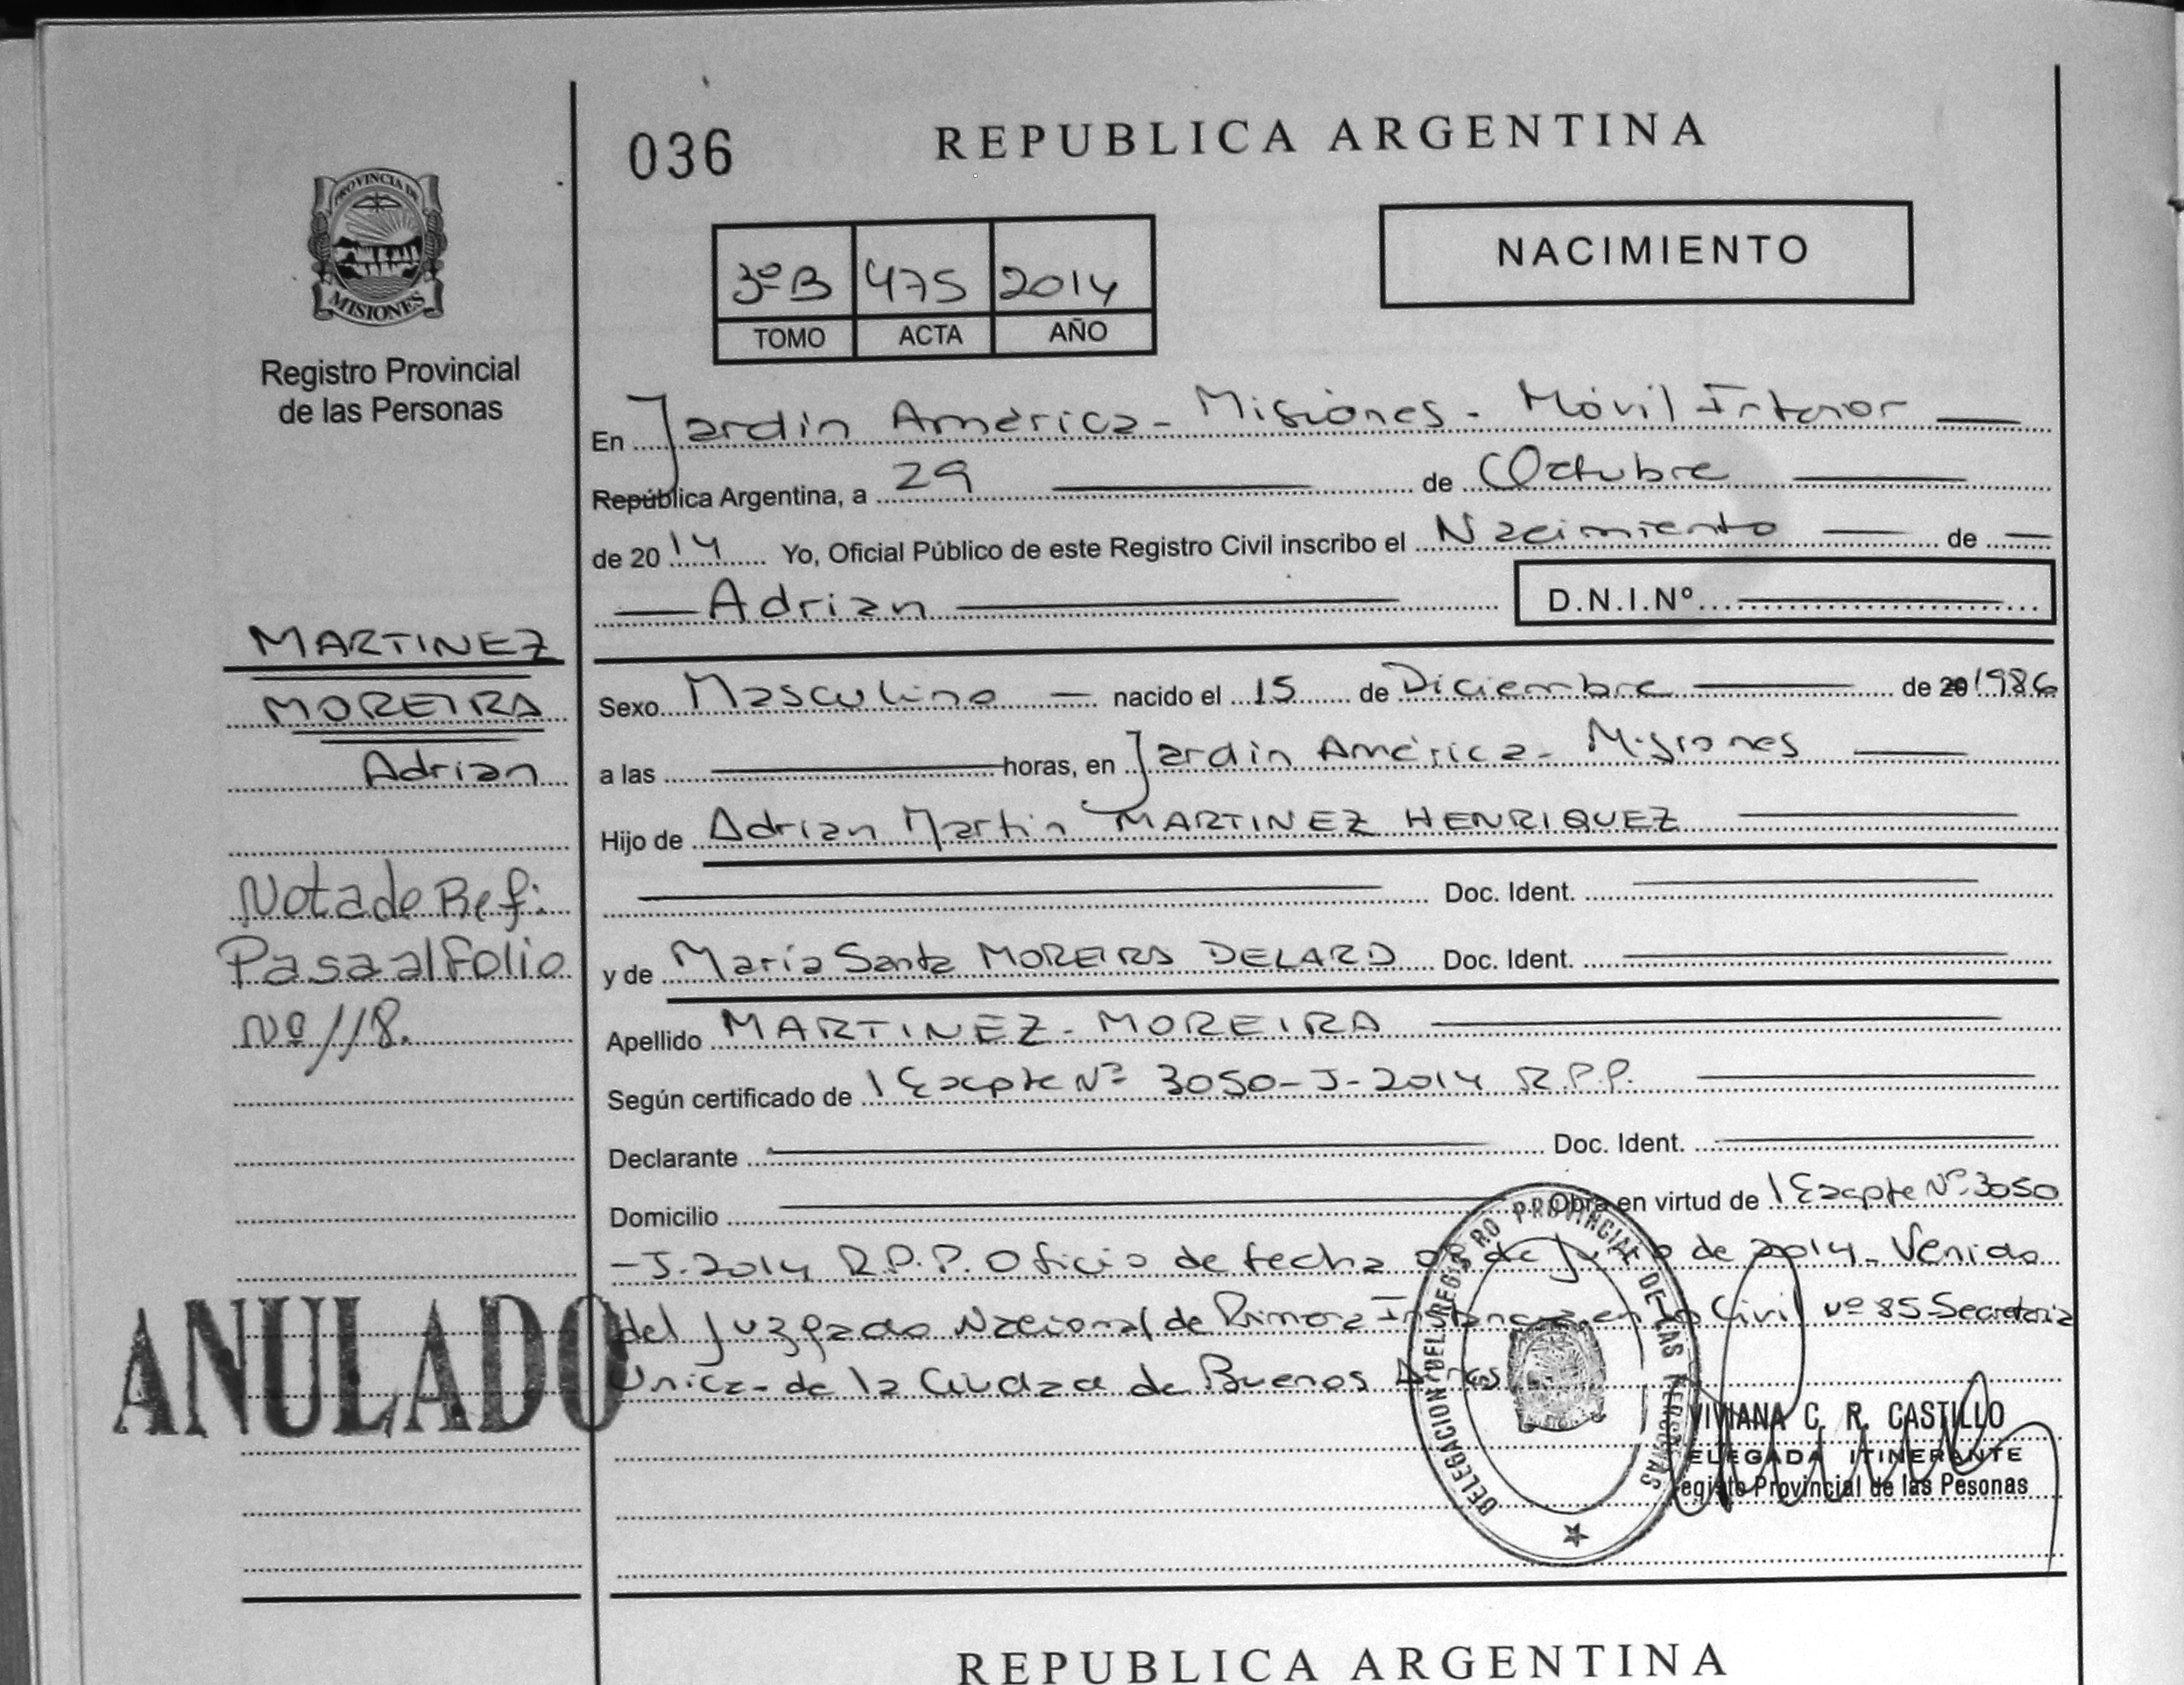 036
REPUBLICA ARGENTINA
NACIMIENTO
3º B 475 2014
TOMO ACTA AÑO
PROVINCIA DE
MISIONES
Registro Provincial
de las Personas
En Jardin América - Misiones - Móvil Interior
República Argentina, a 29 de Octubre
de 2014 Yo, Oficial Público de este Registro Civil inscribo el Nacimiento de
Adrian D.N.I.Nº
MARTINEZ
MOREIRA
Adrian
Nota de Ref:
Pasa al Folio
Nº 118.
ANULADO
Sexo Masculino nacido el 15 de Diciembre de 20 1986
a las horas, en Jardin América - Misiones
Hijo de Adrian Martin MARTINEZ HENRIQUEZ
Doc. Ident.
y de María Santa MOREIRA DELARD Doc. Ident.
Apellido MARTINEZ - MOREIRA
Según certificado de Nº 3050-J-2014 R.P.P.
Declarante Doc. Ident.
Domicilio Obra en virtud de Nº 3050
-J-2014 R.P.P. Oficio de fecha de de 2014 - Venido
del Juzgado Nacional de Primera Instancia en lo Civil Nº 85 Secretaria
Unica - de la Ciudad de Buenos Aires
DELEGACION DEL REGISTRO PROVINCIAL DE LAS PERSONAS
VIVIANA C. R. CASTILLO
ELEGADA ITINERANTE
egistro Provincial de las Pesonas
REPUBLICA ARGENTINA